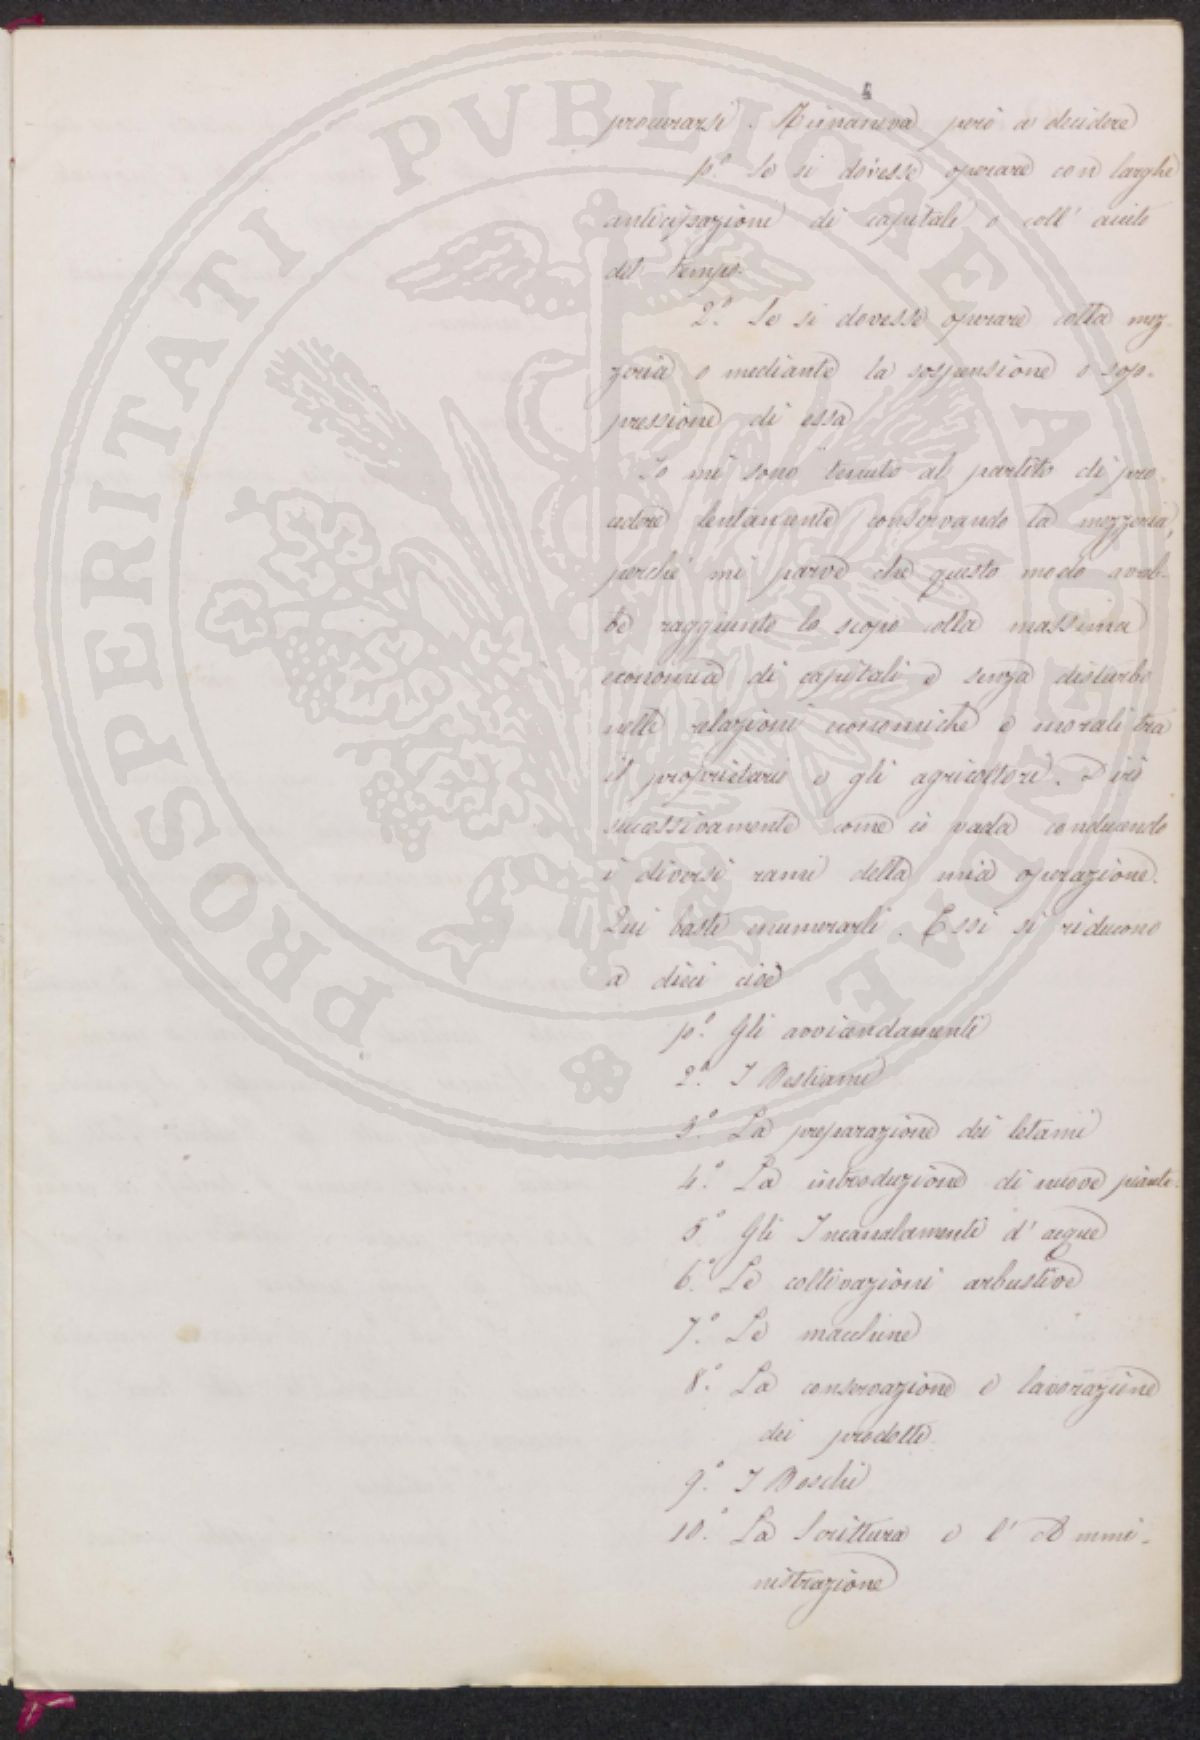 4
procurarsi. Rimaneva però a decidere
p.º Se si dovesse operare con larghe
anticipazioni di capitali o coll' aiuto
del tempo.
2.º Se si dovesse operare colla mez-
zoria o mediante la sospensione o sop-
pressione di essa
Io mi sono tenuto al partito di pro-
cedere lentamente conservando la mezzoria,
perchè mi parve che questo modo avreb-
be raggiunto lo scopo colla massima
economia di capitali e senza disturbo
nelle relazioni economiche e morali tra
il proprietario e gli agricoltori. Dirò
successivamente come io vada conducendo
i diversi rami della mia operazione.
Qui basti enumerarli. Essi si riducono
a dieci cioè
p.º Gli avvicendamenti
2.º I Bestiami
3.º La preparazione dei letami
4.º La introduzione di nuove piante.
5.º Gli Incanalamenti d' acque
6.º Le coltivazioni arbustive
7.º Le macchine
8.º La conservazione e lavorazione
dei prodotti.
9.º I Boschi
10.º La Scrittura e l' Ammi-
nistrazione
PROSPERITATI PVBLICAE AVGENDAE